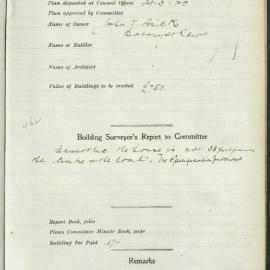 Plan deposited at Council Offices 20-3-20
Plan approved by Committee
Name of Owner John T Dick
Name of Builder
Name of Architect
Value of Buildings to be erected £50
Building Surveyor's Report to Committee
the house is now 33 feet from
the centre of the road.
Report Book, folio
Plans Committee Minute Book, page
Building Fee Paid 5/-
Remarks